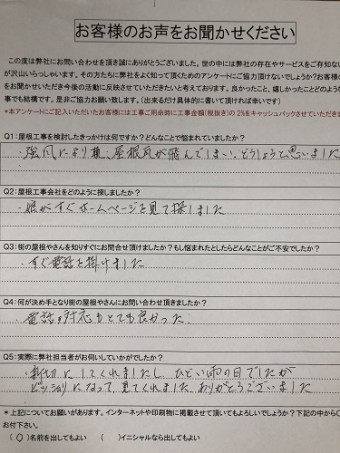 お客様のお声をお聞かせください
この度は弊社にお問い合わせを頂き誠にありがとうございました。世の中には弊社の存在やサービスをご存知ない
が沢山いらっしゃいます。その方たちに弊社をよく知って頂くためのアンケートにご協力頂けないでしょうか?お客様の
をお聞かせいただき今後の活動に反映させていただきたいと考えております。良かったこと、嬉しかったことどのような
事でも結構です。是非ご協力お願い致します。(出来るだけ具体的に書いて頂ければ幸いです)
*本アンケートにご記入いただいたお客様には工事ご用命時に工事金額(税抜き)の2%をキャッシュバックさせていただきま
Q1:屋根工事を検討したきっかけは何ですか?どんなことで悩まれていましたか?
・強風により棟、屋根瓦が飛んでしまい、どうしようと思いました
Q2:屋根工事会社をどのように探しましたか?
・娘がすぐホームページを見て探しました
Q3:街の屋根やさんを知りすぐにお問合せ頂けますか?もし悩まれたとしたらどんなことがご不安でしたか?
・すぐ電話を掛けました
Q4:何が決め手となり街の屋根やさんにお問い合わせ頂きましたか?
・電話の対応もとても良かった
Q5:実際に弊社担当者がお伺いしていかがでしたか?
・親切にしてくれましたし、ひどい雨の日でしたが
ビッショリになって、見てくれました ありがとうございました
*上記についてお願いがあります。インターネットや印刷物に掲載させて頂いてもよろしいでしょうか?下記の中から○
お付下さい。
(○)名前を出してもよい ( )イニシャルなら出してもよい